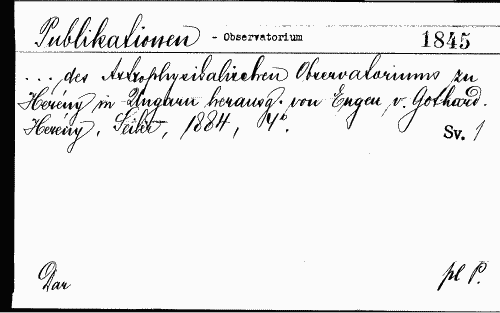 Publikationen - Observatorium 1845
... des Astrophysikalischen Observatoriums zu
Herény in Ungarn herausg. von Eugen v. Gothard.
Herény, Seiler, 1884, 4°. Sv. 1
Dar pl P.